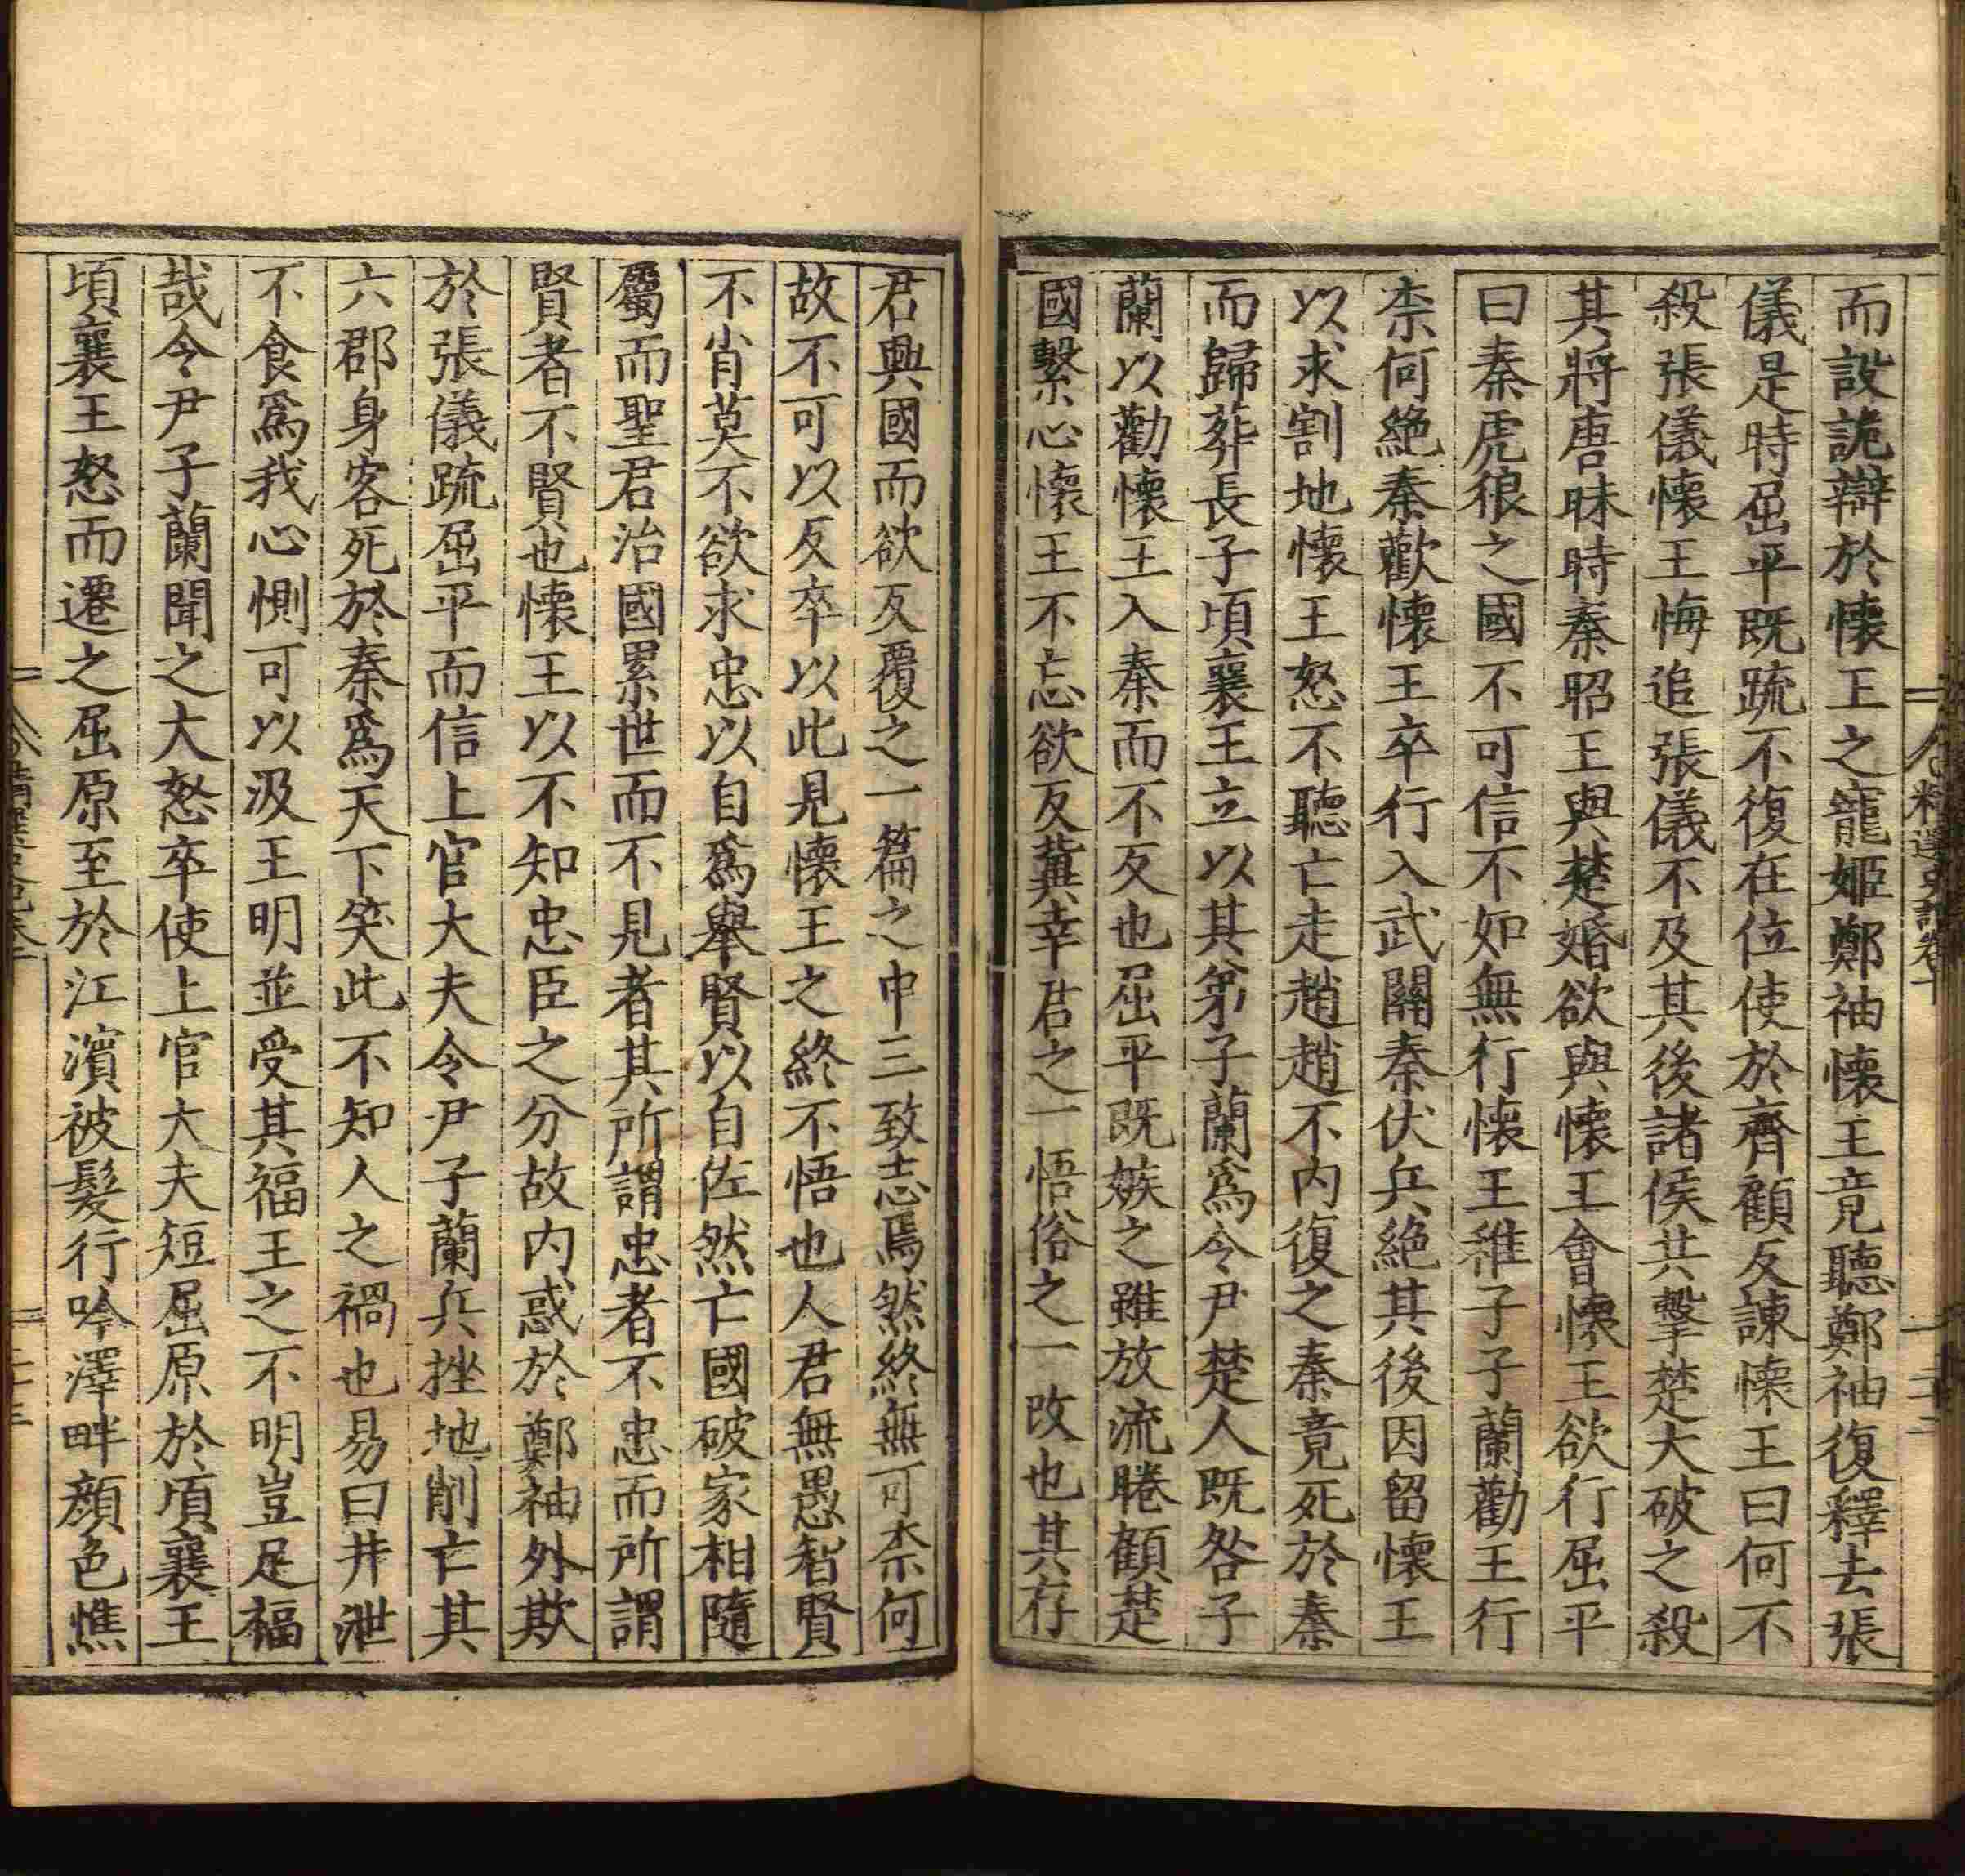 而設詭辯於懷王之寵姬鄭袖懷王竟聽鄭袖復釋去張
儀是時屈平既疏不復在位使於齊顧反諫懷王曰何不
殺張儀懷王悔追張儀不及其後諸侯共擊楚大破之殺
其將唐昧時秦昭王與楚婚欲與懷王會懷王欲行屈平
曰秦虎狼之國不可信不如無行懷王稚子子蘭勸王行
柰何絶秦歡懷王卒行入武關秦伏兵絶其後因留懷王
以求割地懷王怒不聽亡走趙趙不内復之秦竟死於秦
而歸葬長子頃襄王立以其弟子蘭爲令尹楚人既咎子
蘭以勸懷王入秦而不反也屈平既嫉之雖放流睠顧楚
國繫心懷王不忘欲反冀幸君之一悟俗之一改也其存
君興國而欲反覆之一篇之中三致志焉然終無可柰何
故不可以反卒以此見懷王之終不悟也人君無愚智賢
不肖莫不欲求忠以自爲舉賢以自佐然亡國破家相隨
屬而聖君治國累世而不見者其所謂忠者不忠而所謂
賢者不賢也懷王以不知忠臣之分故内惑於鄭袖外欺
於張儀疏屈平而信上官大夫令尹子蘭兵挫地削亡其
六郡身客死於秦爲天下笑此不知人之禍也易曰井泄
不食爲我心惻可以汲王明並受其福王之不明豈足福
哉令尹子蘭聞之大怒卒使上官大夫短屈原於頃襄王
頃襄王怒而遷之屈原至於江濱被髮行吟澤畔顔色憔